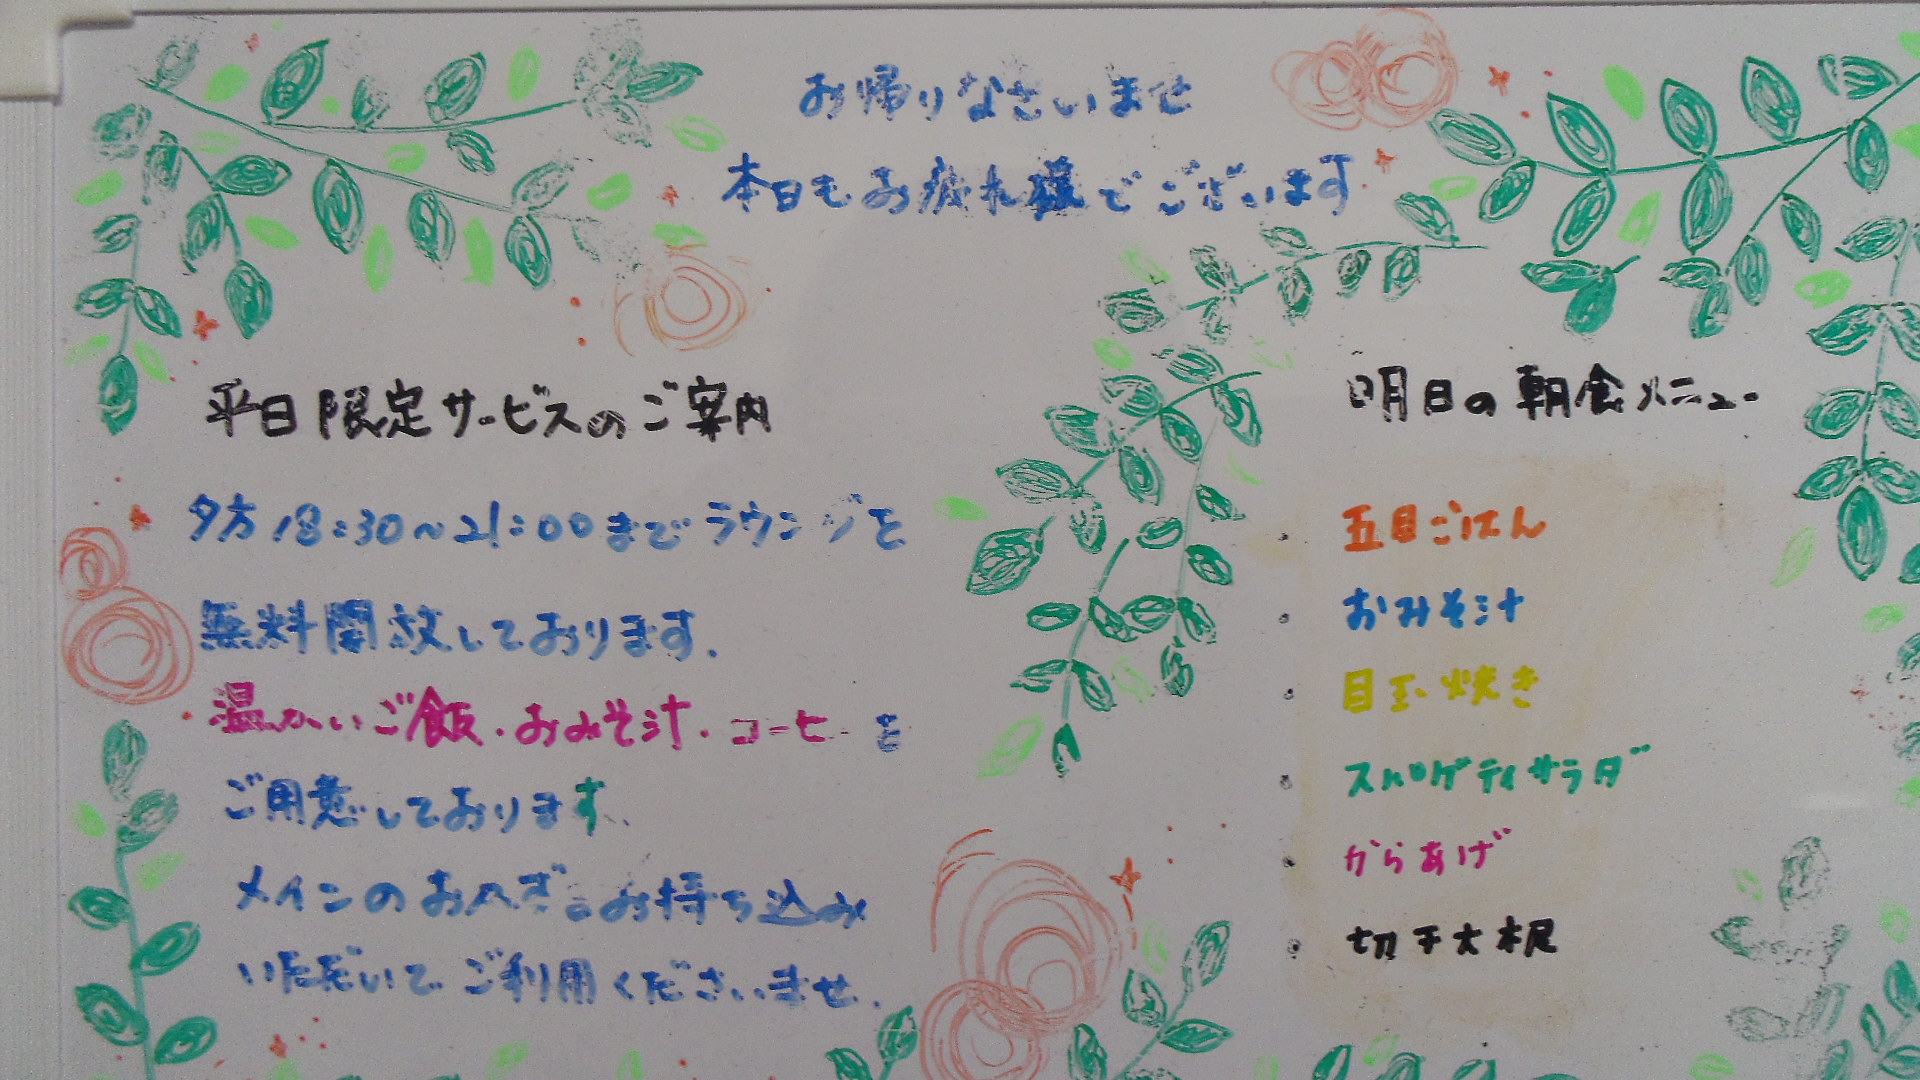 お帰りなさいませ
本日もお疲れ様でございます
平日限定サービスのご案内
夕方18:30~21:00までラウンジを
無料開放しております.
温かいご飯・おみそ汁・コーヒーを
ご用意しております.
メインのおかずをお持ち込み
いただいてご利用くださいませ.
明日の朝食メニュー
・五目ごはん
・おみそ汁
・目玉焼き
・スパゲティサラダ
・からあげ
・切干大根